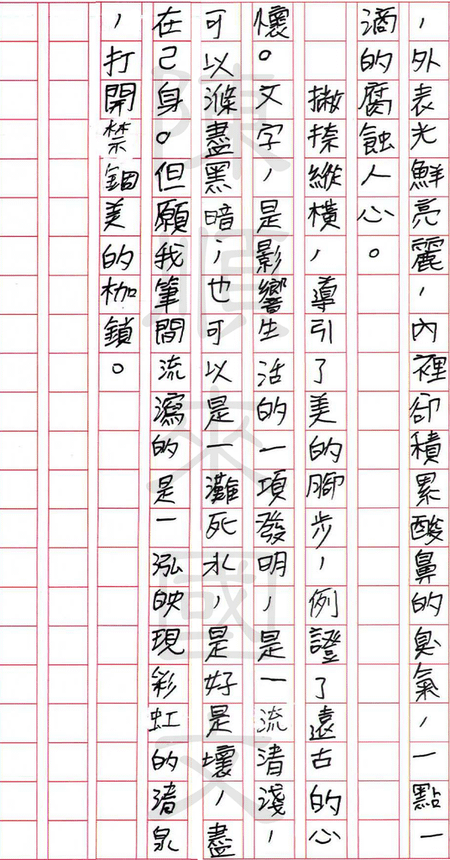 ，外表光鮮亮麗，內裡卻積累酸鼻的臭氣，一點一
滴的腐蝕人心。
撇捺縱橫，導引了美的腳步，例證了遠古的心
懷。文字，是影響生活的一項發明，是一流清淺，
可以滌盡黑暗；也可以是一灘死水，是好是壞，盡
在己身。但願我筆間流瀉的是一泓映現彩虹的清泉
，打開禁錮美的枷鎖。
陳順來國文